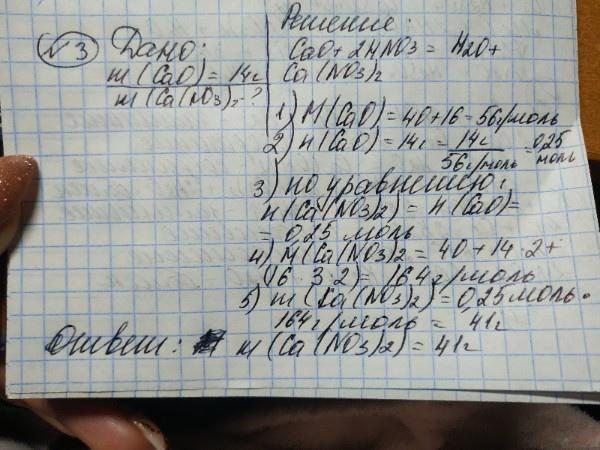 №3 Дано:
m(CaO) = 14г
m(Ca(NO3)2-?
Решение:
CaO + 2HNO3 = H2O +
Ca(NO3)2
1) M(CaO) = 40+16 = 56г/моль
2) n(CaO) = 14г = 14г/56г/моль = 0,25 моль
3) по уравнению,
n(Ca(NO3)2) = n(CaO)=
= 0,25 моль
4) M(Ca(NO3)2 = 40+14·2+
(16·3·2) = 164г/моль
5) m(Ca(NO3)2) = 0,25моль·
164г/моль = 41г
Ответ: m(Ca(NO3)2) = 41г